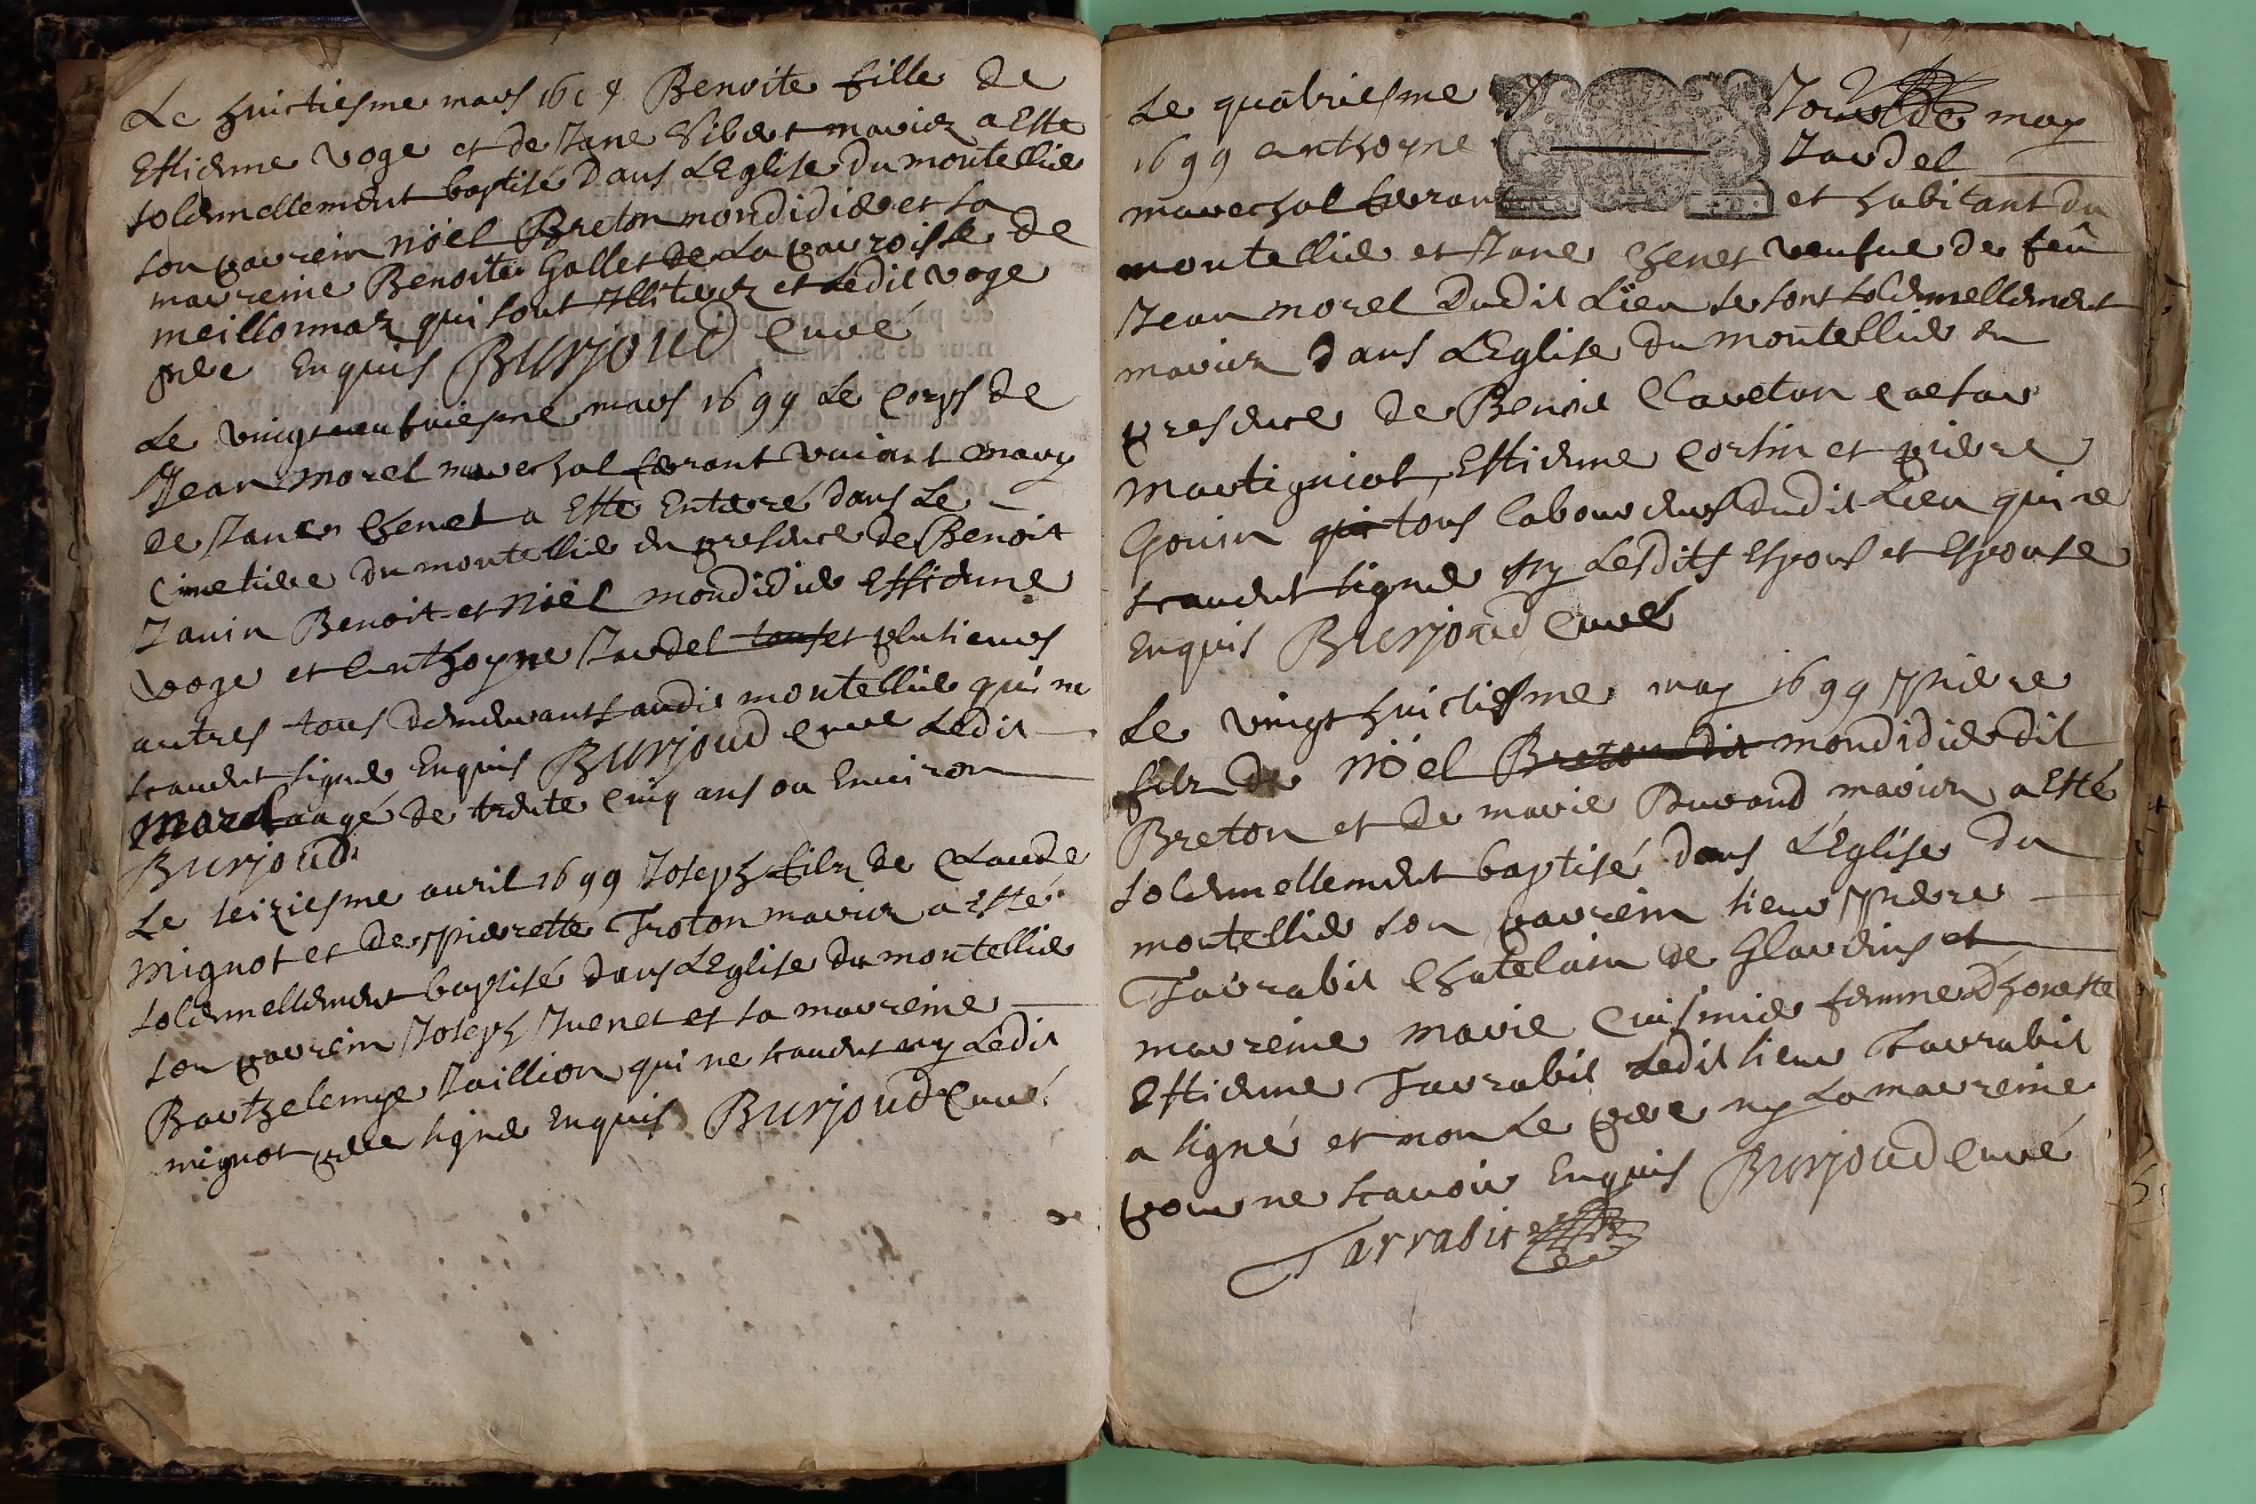 Le huictiesme mars 169 Benoite fille de
Estienne voge et de Jane Vibert mariez a Esté
solemnellement baptisé dans LEglise du montellier
son parrein noël Breton mondidier et sa
marreine Benoite Gallet de La parroisse de
meillonnaz qui sont Illiterez et Ledit voge
pere Enquis Burjoud Curé
Le vingt mars 1699 Le Corps de
Jean morel marechal ferrant vivant mary
de Jane Chenet a Este Enterré dans Le
Cimetiere du montellier en presence de Benoit
Janin Benoit et Noël mondidier Estienne
voge et Anthoyne Jardel tous et plusieurs
autres tous demeurants audit montellier qui ne
scavent signer Enquis Burjoud Curé Ledit
Morel aagé de trente Cinq ans ou Environ
Burjoud
Le seiziesme avril 1699 Joseph filz de Claude
mignot et de pierrette Troton mariez a Esté
solemnellement baptisé dans LEglise du montellier
son parrein Joseph Juenet et sa marreine
Barthelemye Jaillion qui ne scavent ny Ledit
mignot pere signer Enquis Burjoud Curé
Le quatriesme Jour de may
1699 anthoyne Jardel
marechal ferrant et habitant du
montellier et Jane Chenet veufue de feû
Jean morel Dudit Lieu se sont solemnellement
mariez dans LEglise du montellier en
presence de Benoit Claveton Caesar
martigniat, Estienne Corsin et pierre
Gonin qui tous laboureurs dudit Lieu qui ne
scavent signer ny Lesdits Espoux et Espouse
Enquis Burjoud Curé
Le vingt huictiesme may 1699 pierre
filz de Nöel Breton dit mondidier dit
Breton et de marie Durand mariez a Esté
solemnellement baptisé dans LEglise du
montellier son parrein sieur pierre
Tarrabit Chatelain de Glareins et
marreine marie femme dhoneste
Estienne Tarrabit Ledit sieur Tarrabit
a signé et non Le pere ny La marreine
pour ne scavoir Enquis Burjoud Curé
Tarrabit